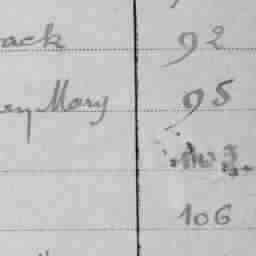 ack 92
ey Mary 95
106